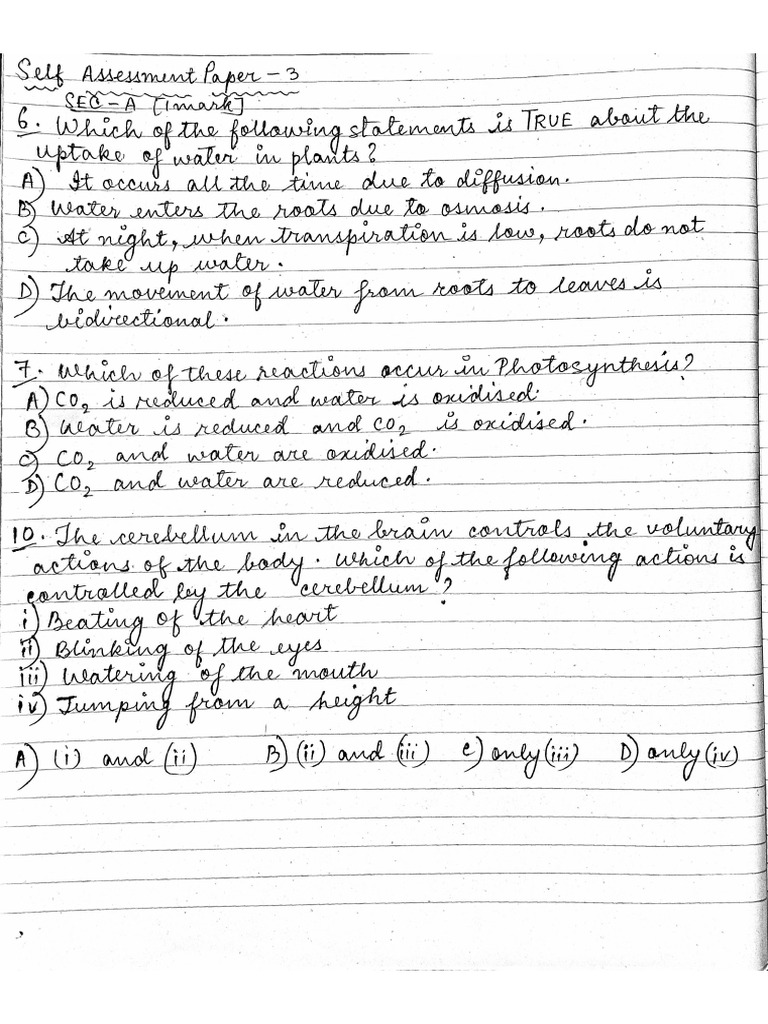 Self Assessment Paper - 3
SEC - A [1 mark]
6. Which of the following statements is TRUE about the
uptake of water in plants?
A) It occurs all the time due to diffusion.
B) Water enters the roots due to osmosis.
C) At night, when transpiration is low, roots do not
take up water.
D) The movement of water from roots to leaves is
bidirectional.
7. Which of these reactions occur in Photosynthesis?
A) CO2 is reduced and water is oxidised.
B) Water is reduced and CO2 is oxidised.
C) CO2 and water are oxidised.
D) CO2 and water are reduced.
10. The cerebellum in the brain controls the voluntary
actions of the body. Which of the following actions is
controlled by the cerebellum?
i) Beating of the heart
ii) Blinking of the eyes
iii) Watering of the mouth
iv) Jumping from a height
A) (i) and (ii) B) (ii) and (iii) C) only (iii) D) only (iv)